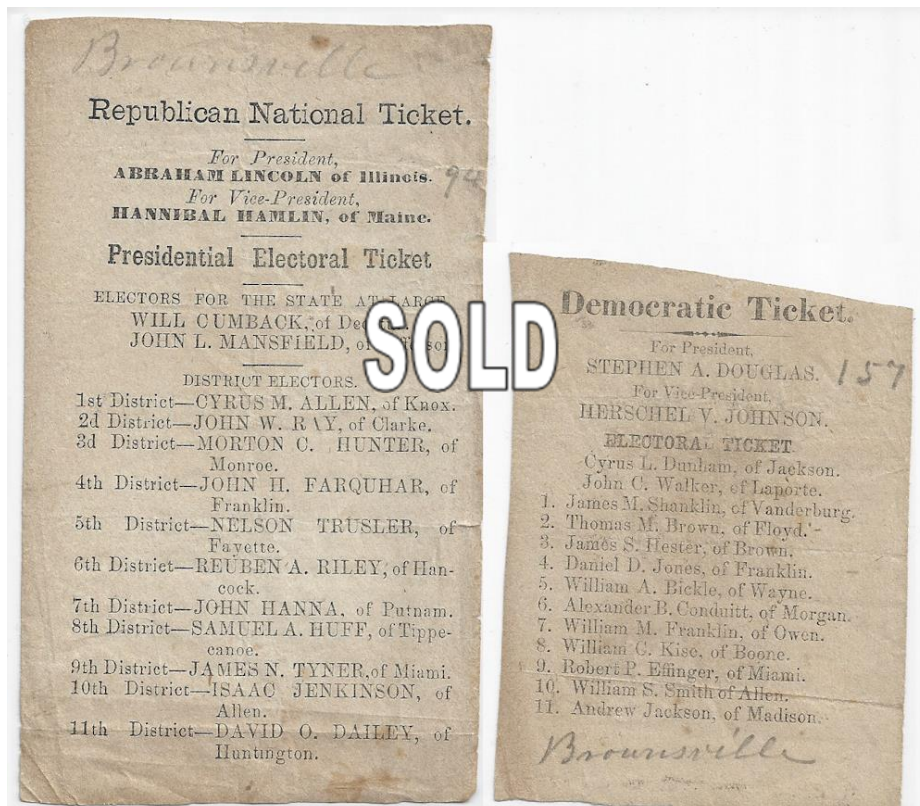 Brownsville
Republican National Ticket.
For President,
ABRAHAM LINCOLN of Illinois.
94
For Vice-President,
HANNIBAL HAMLIN, of Maine.
Presidential Electoral Ticket
ELECTORS FOR THE STATE AT LARGE
WILL CUMBACK, of
JOHN L. MANSFIELD,
DISTRICT ELECTORS.
1st District—CYRUS M. ALLEN, of Knox.
2d District—JOHN W. RAY, of Clarke.
3d District—MORTON C. HUNTER, of
Monroe.
4th District—JOHN H. FARQUHAR, of
Franklin.
5th District—NELSON TRUSLER, of
Fayette.
6th District—REUBEN A. RILEY, of Han-
cock.
7th District—JOHN HANNA, of Putnam.
8th District—SAMUEL A. HUFF, of Tippe-
canoe.
9th District—JAMES N. TYNER, of Miami.
10th District—ISAAC JENKINSON, of
Allen.
11th District—DAVID O. DAILEY, of
Huntington.
SOLD
Democratic Ticket.
For President,
STEPHEN A. DOUGLAS.
157
For Vice-President,
HERSCHEL V. JOHNSON.
ELECTORAL TICKET
Cyrus L. Dunham, of Jackson.
John C. Walker, of Laporte.
1. James M. Shanklin, of Vanderburg.
2. Thomas M. Brown, of Floyd.
3. James S. Hester, of Brown.
4. Daniel D. Jones, of Franklin.
5. William A. Bickle, of Wayne.
6. Alexander B. Conduitt, of Morgan.
7. William M. Franklin, of Owen.
8. William C. Kise, of Boone.
9. Robert P. Effinger, of Miami.
10. William S. Smith of Allen.
11. Andrew Jackson, of Madison.
Brownsville